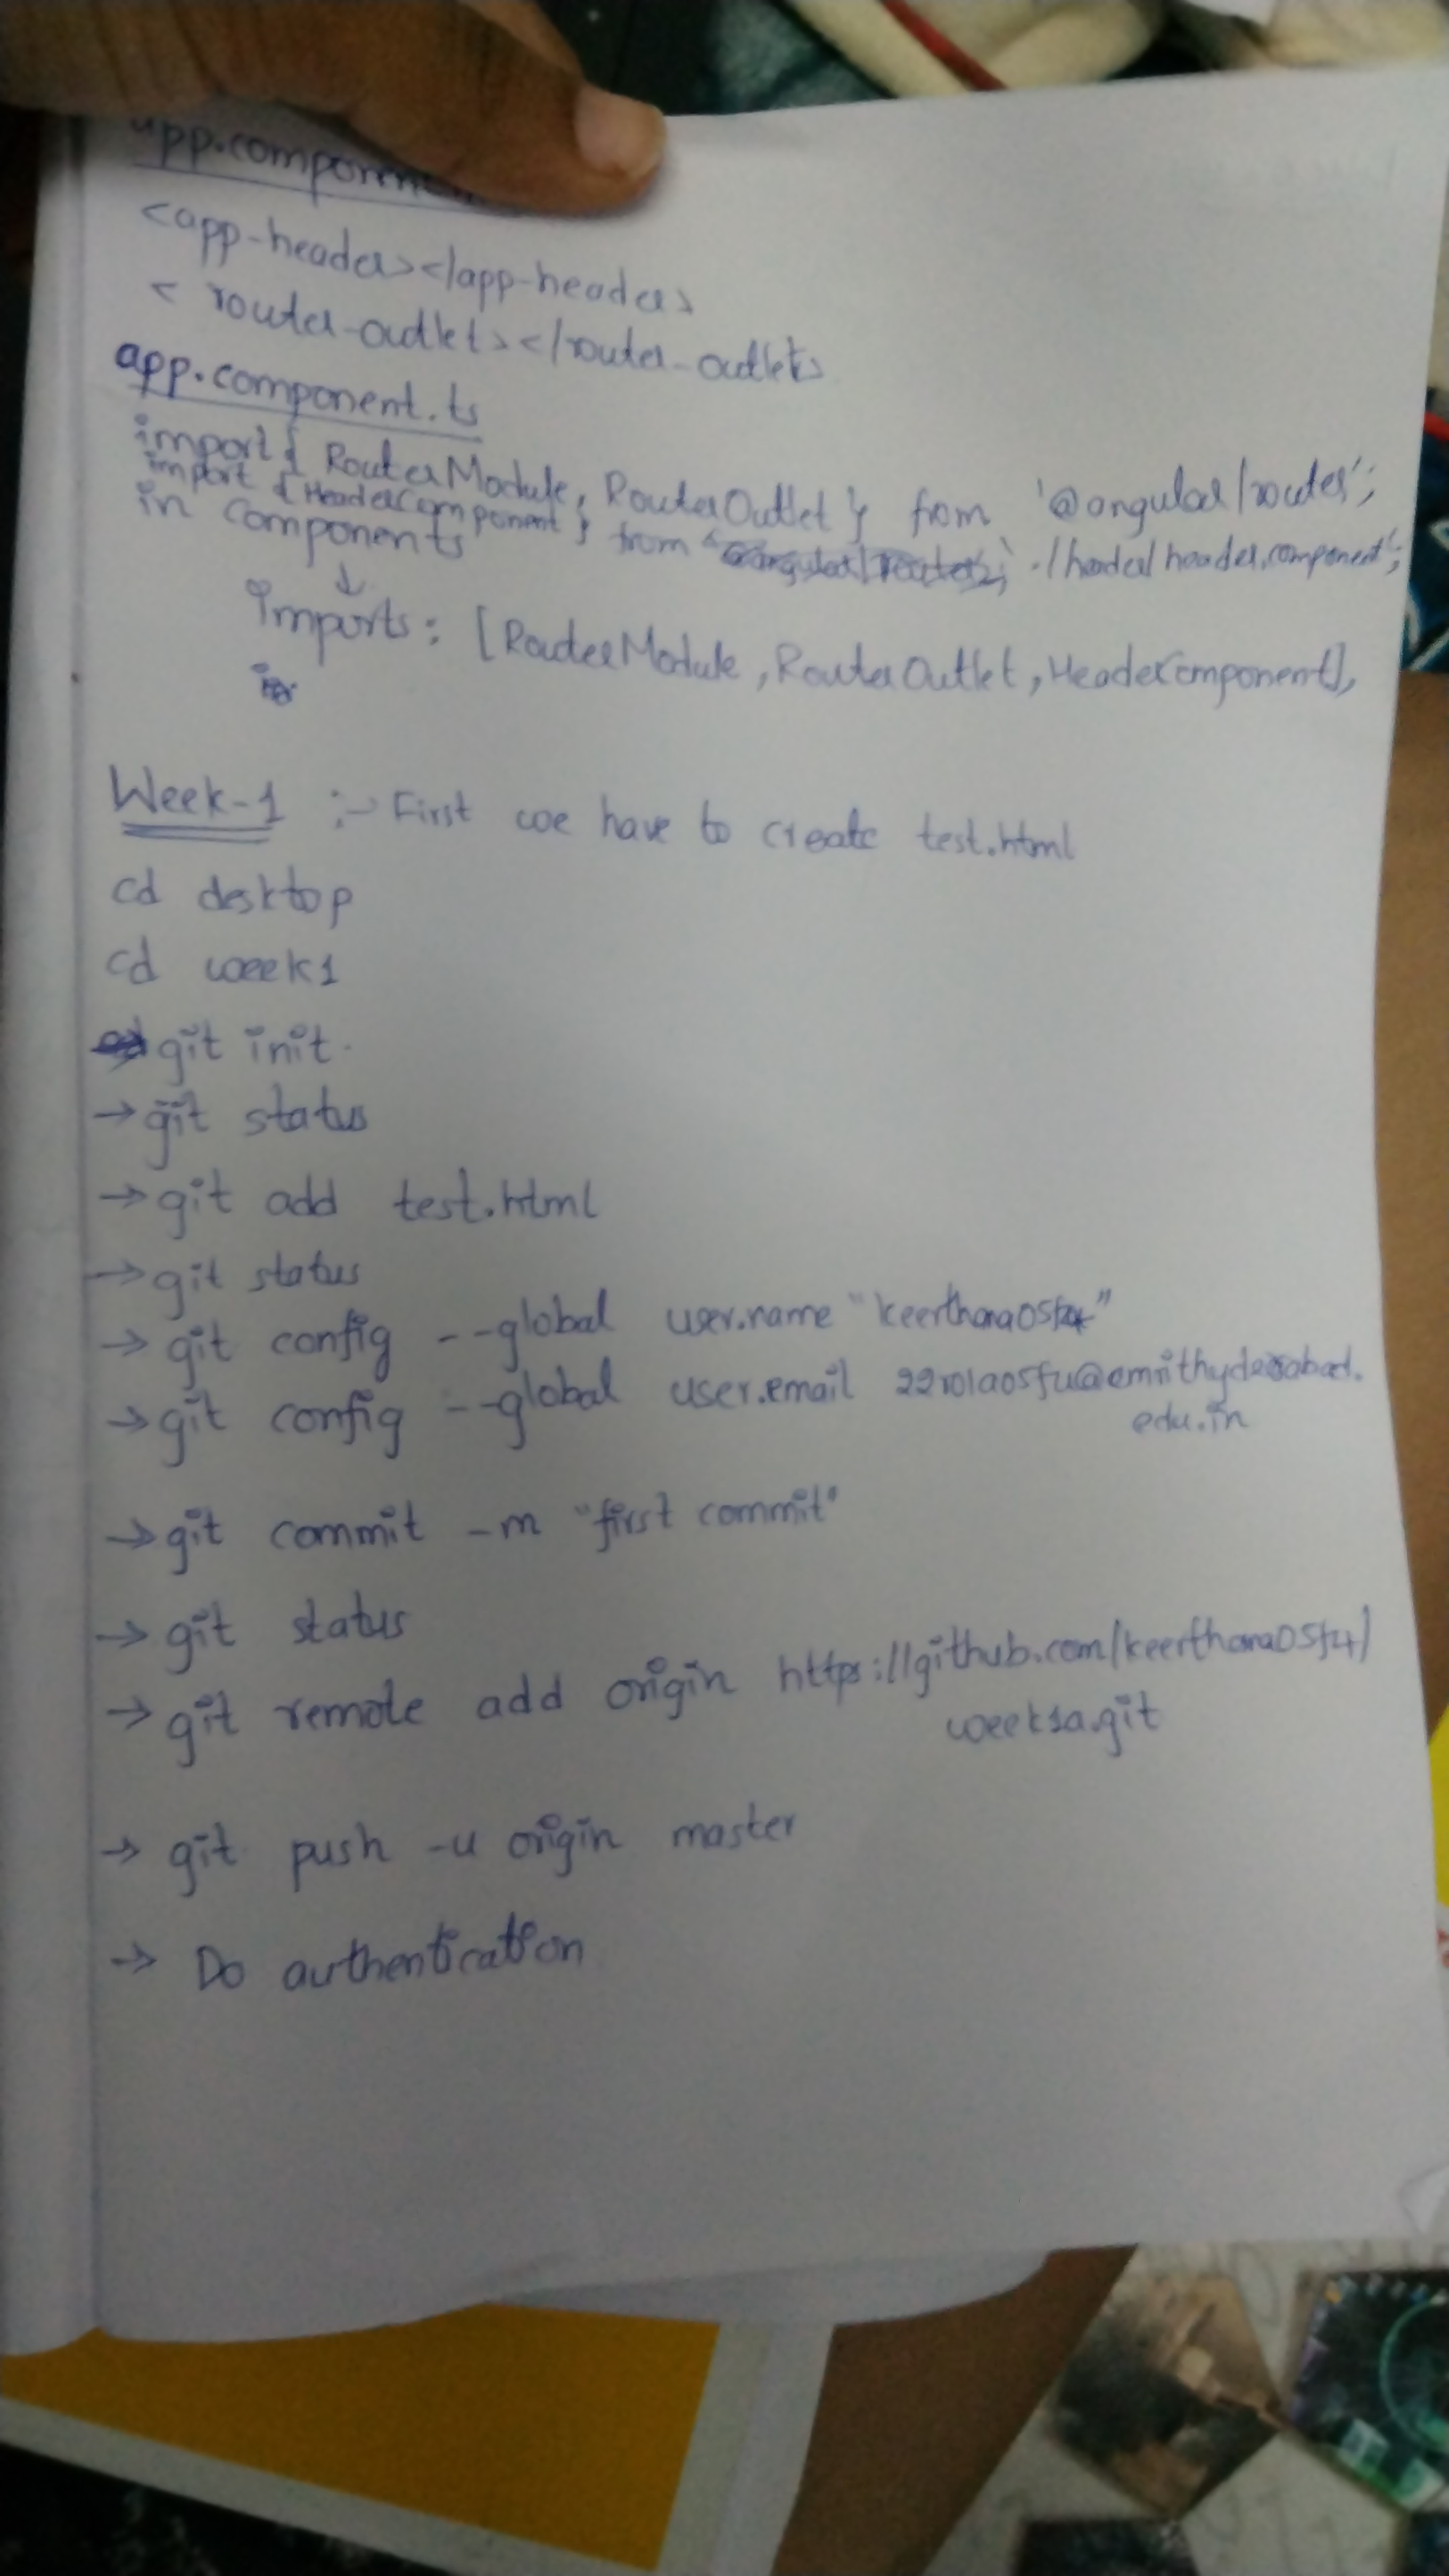 app.component
<app-header></app-header>
<router-outlet></router-outlet>
app.component.ts
import { RouterModule, RouterOutlet } from '@angular/router';
import { HeaderComponent } from './header/header.component';
in components
↓
imports: [RouterModule, RouterOutlet, HeaderComponent],
Week-1 :- First we have to create test.html
cd desktop
cd week1
git init.
→ git status
→ git add test.html
→ git status
→ git config --global user.name "keerthana05f4"
→ git config --global user.email 22r01a05fu@cmrithyderabad.
edu.in
→ git commit -m "first commit"
→ git status
→ git remote add origin https://github.com/keerthana05f4/
week1a.git
→ git push -u origin master
→ Do authentication